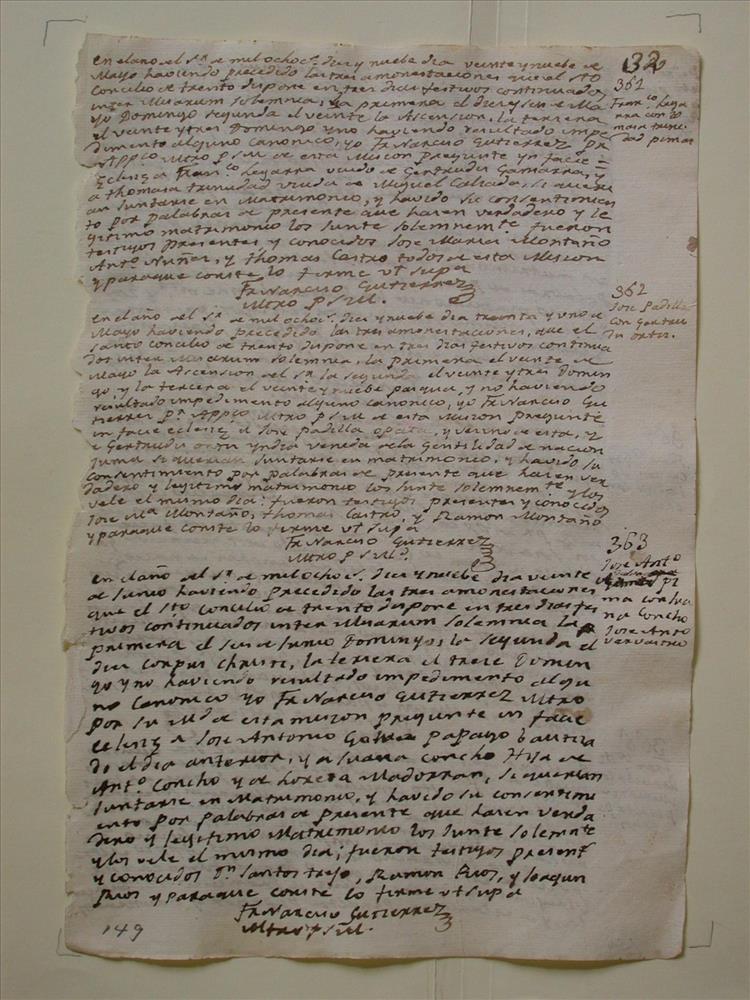 32
en el año del Sr de mil ochoc.s diez y nuebe dia veinte y nuebe de
Mayo haviendo precedido las tres amonestaciones que el Sto
Concilio de trento dispone en tres dias festivos continuados
inter Missarum solemnia, la primera el diez y seis de Ma
yo Domingo segunda el veinte la Ascension, la tercera
el veinte y tres Domingo y no haviendo resultado impe
dimento alguno canonico, yo Fr Narciso Gutierrez Pr
Appco Mtro p S.M. de esta Mision pregunte yn facie
Eclesiæ a Franco Legarra viudo de Gertrudis Gamarra, y
a thomasa trinidad viuda de Miguel Calzada, si queri
an Juntarse en Matrimonio, y havido su consentimien
to por palabras de presente que hazen verdadero y le
gitimo matrimonio los Junte solemnemte fueron
testigos presentes y conocidos Jose Maria Montaño
Anto Nuñez, y thomas Castro todos de esta Mision
y para que conste lo firme vt supa
Fr Narciso Gutierrez
Mtro p S.M.
361
Franco Lega
rra con to
masa trini
dad pimas
en el año del Sr de mil ochoc.s diez y nuebe dia treinta y uno de
Mayo haviendo precedido las tres amonestaciones, que el
santo concilio de trento dispone en tres dias festivos continua
dos inter Missarum solemnia, la primera el veinte de
Mayo la Ascension del Sr la segunda el veinte y tres Domin
go y la tercera el veinte y nuebe pasqua, y no haviendo
resultado impedimento alguno canonico, yo Fr Narciso Gu
tierrez Pr Appco Mtro p S.M. de esta Mision pregunte
in facie eclesiæ a Jose Padilla opata, y vecino de esta, y
a Gertrudis ortiz yndia venida de la Gentilidad de nacion
yuma si querian Juntarse en matrimonio, y havido su
consentimiento por palabras de presente que hazen ver
dadero y legitimo matrimonio los Junte solemnemte y los
vele el mismo dia; fueron testigos presentes y conocidos
Jose Ma Montaño, thomas Castro, y Ramon Montaño
y para que conste lo firme vt supa
Fr Narciso Gutierrez
Mtro p S.M.
362
Jose Padilla
con Gertru
dis ortiz.
en el año del Sr de mil ochoc.s diez y nuebe dia veinte
de Junio haviendo precedido las tres amonestaciones
que el Sto Concilio de trento dispone en tres dias fes
tivos continuados inter Missarum solemnia la
primera el seis de Junio Domingo, la segunda el
dia corpus christi, la tercera el treze Domin
go y no haviendo resultado impedimento algu
no canonico yo Fr Narciso Gutierrez Mtro
por su Md de esta mision pregunte in facie
eclesiæ a Jose Antonio papago bautiza
do el dia anterior, y a Juana Concho Hija de
Anto Concho y de Loreta Madorran, si querian
Juntarse en Matrimonio, y havido su consentimi
ento por palabras de presente que hazen verda
dero y legitimo Matrimonio los Junte solemnte
y los vele el mismo dia; fueron testigos presents
y conocidos Dn Santos trejo, Ramon Rios, y Joaqun
Rios y para que conste lo firme vt supa
Fr Narciso Gutierrez
Mtro p S.M.
363
Jose Anto
pi
ma con Jua
na Concho
Jose Anto
149